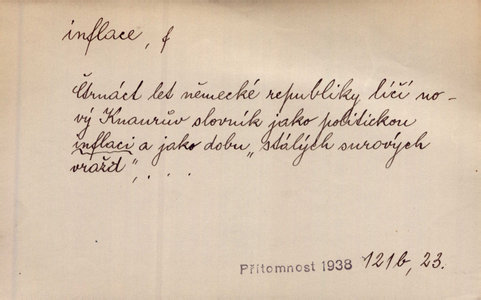 inflace, f
Čtrnáct let německé republiky líčí no-
vý Knaurův slovník jako politickou
inflaci a jako dobu „stálých surových
vražd",...
Přítomnost 1938 121b, 23.